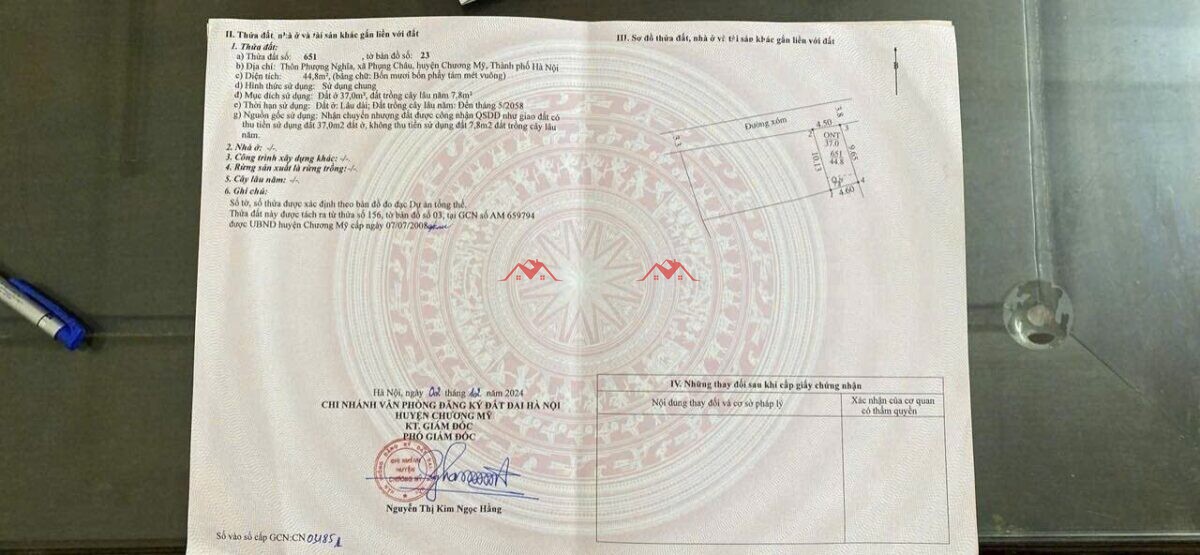 II. Thửa đất, nhà ở và tài sản khác gắn liền với đất
1. Thửa đất:
a) Thửa đất số: 651 , tờ bản đồ số: 23
b) Địa chỉ: Thôn Phượng Nghĩa, xã Phụng Châu, huyện Chương Mỹ, Thành phố Hà Nội
c) Diện tích: 44,8m², (bằng chữ: Bốn mươi bốn phẩy tám mét vuông)
d) Hình thức sử dụng: Sử dụng chung
đ) Mục đích sử dụng: Đất ở 37,0m², đất trồng cây lâu năm 7,8m²
e) Thời hạn sử dụng: Đất ở: Lâu dài; Đất trồng cây lâu năm: Đến tháng 5/2058
g) Nguồn gốc sử dụng: Nhận chuyển nhượng đất được công nhận QSDĐ như giao đất có
thu tiền sử dụng đất 37,0m2 đất ở, không thu tiền sử dụng đất 7,8m2 đất trồng cây lâu
năm.
2. Nhà ở: -/-.
3. Công trình xây dựng khác: -/-.
4. Rừng sản xuất là rừng trồng:-/-.
5. Cây lâu năm: -/-.
6. Ghi chú:
Số tờ, số thửa được xác định theo bản đồ đo đạc Dự án tổng thể.
Thửa đất này được tách ra từ thửa số 156, tờ bản đồ số 03, tại GCN số AM 659794
được UBND huyện Chương Mỹ cấp ngày 07/07/2008
Hà Nội, ngày 02 tháng 12 năm 2024
CHI NHÁNH VĂN PHÒNG ĐĂNG KÝ ĐẤT ĐAI HÀ NỘI
HUYỆN CHƯƠNG MỸ
KT. GIÁM ĐỐC
PHÓ GIÁM ĐỐC
CHI NHÁNH
HUYỆN
CHƯƠNG MỸ
Nguyễn Thị Kim Ngọc Hằng
Số vào sổ cấp GCN:CN
III. Sơ đồ thửa đất, nhà ở và tài sản khác gắn liền với đất
B
Đường xóm
3.3
3.8
4.50
2
3
ONT
37.0
651
44.8
10.13
9.65
1
4
4.60
IV. Những thay đổi sau khi cấp giấy chứng nhận
Nội dung thay đổi và cơ sở pháp lý
Xác nhận của cơ quan
có thẩm quyền